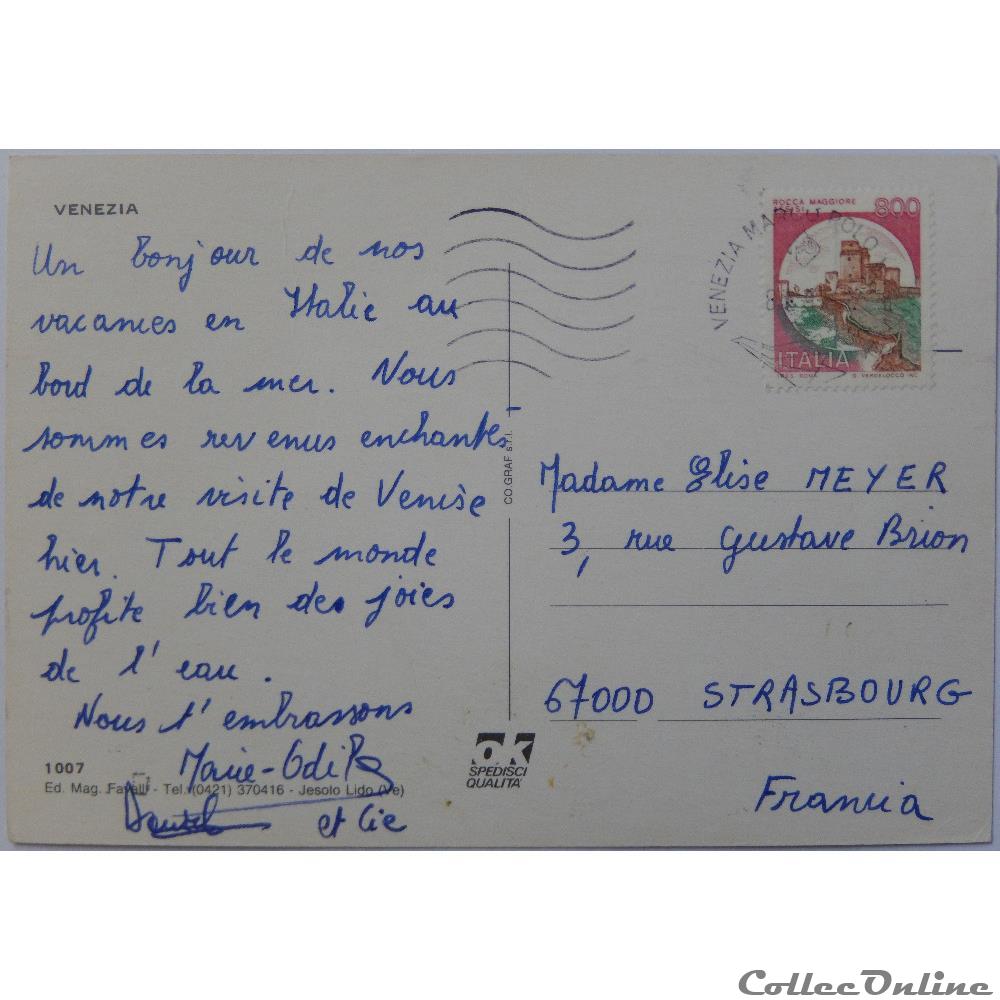 VENEZIA
Un bonjour de nos
vacances en Italie au
bord de la mer. Nous
sommes revenus enchantés
de notre visite de Venise
hier. Tout le monde
profite bien des joies
de l'eau.
Nous t'embrassons
Marie-Odile
et Cie
1007
Ed. Mag. Favelli - Tel. (0421) 370416 - Jesolo Lido (Ve)
CO.GRAF s.r.l.
ok
SPEDISCI
QUALITA'
VENEZIA MARCO POLO
ROCCA MAGGIORE
800
ITALIA
Madame Elise MEYER
3, rue Gustave Brion
67000 STRASBOURG
Francia
CollecOnline